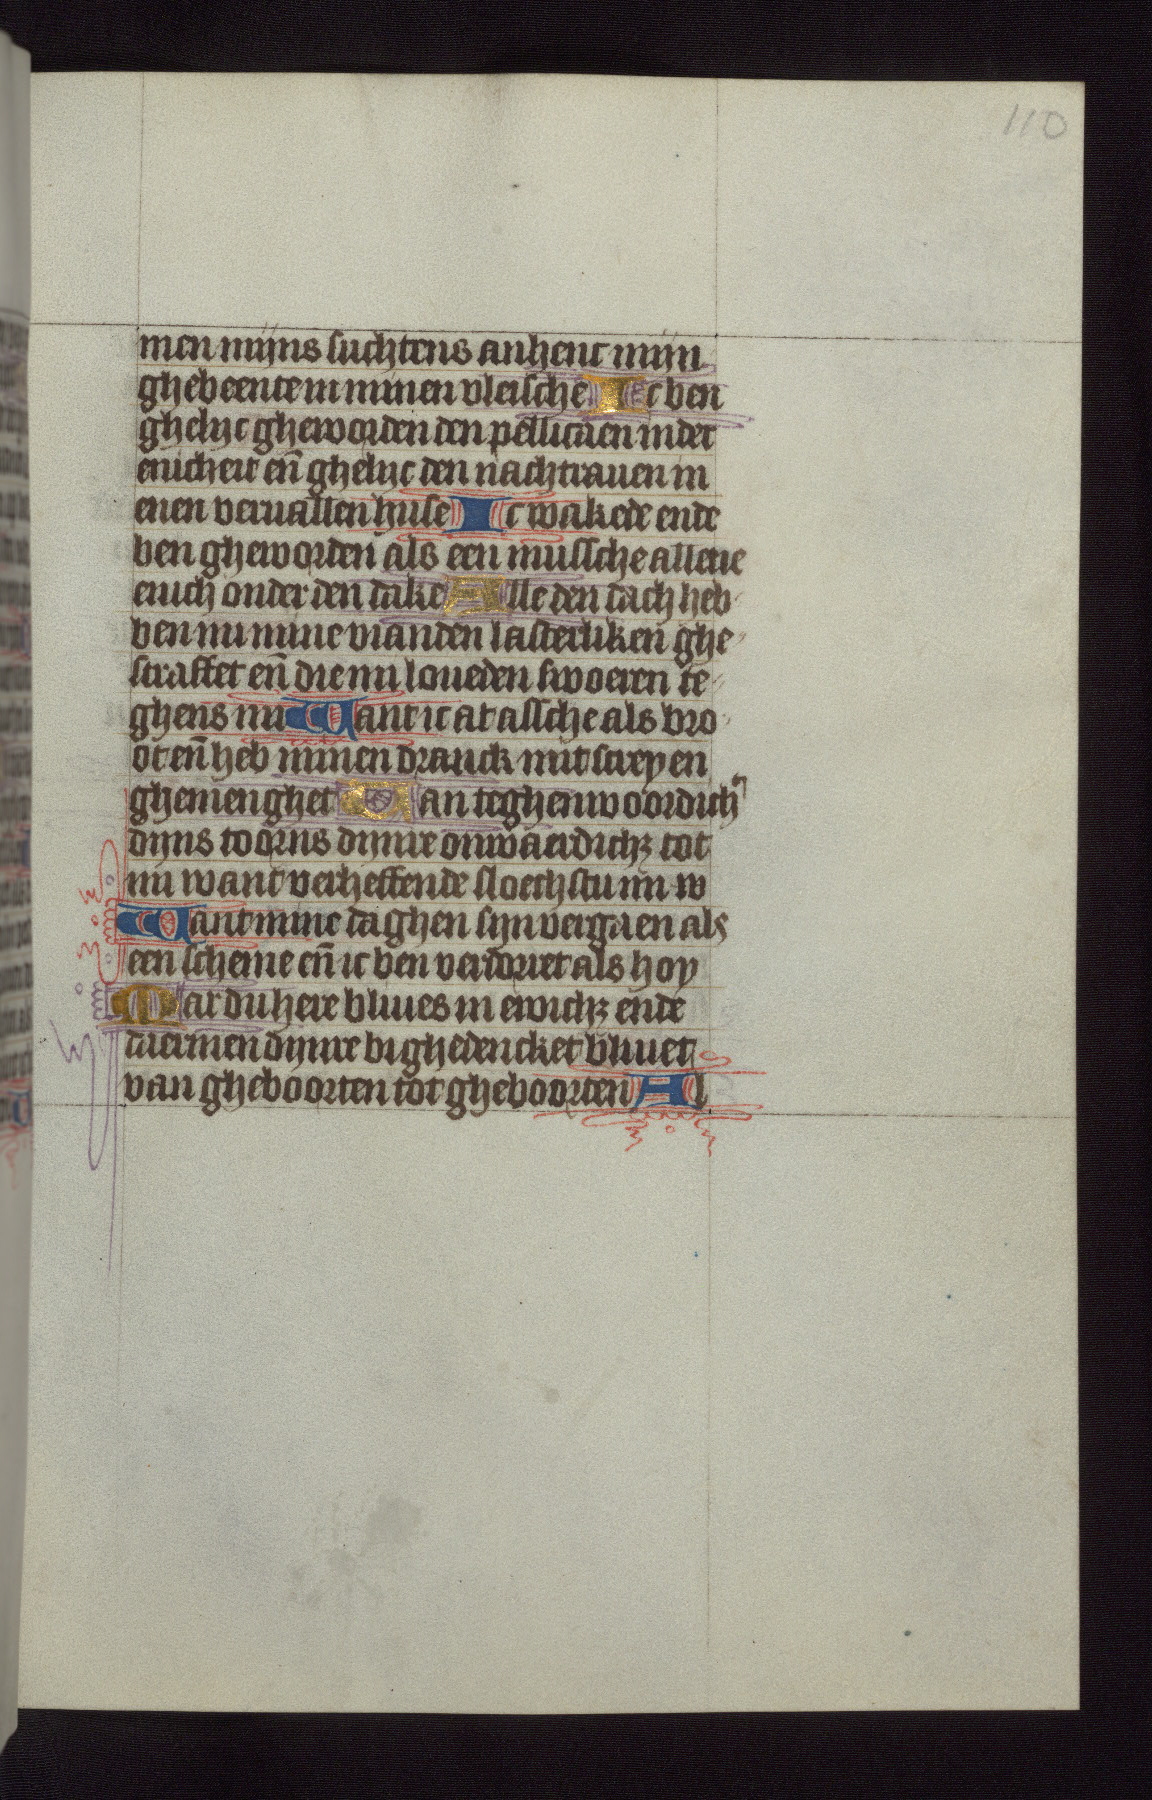 110
men mijns suchtens anhenc mijn
ghebeente in minen vleische Ic ben
ghelijc gheworden den pellicaen in der
enicheit en̄ ghelijc den nachtrauen in
enen veruallen huse Ic wakede ende
ben gheworden als een mussche allene
enich onder den dake Alle den dach heb
ben mi mine vianden lasterliken ghe
straffet en̄ die mi loueden swoeren te
ghens mi Want ic at assche als bro
ot en̄ heb minen dranck mit screyen
ghemenghet Van teghenwoordich
dijns toorns dijnre onwaerdichꝫ tot
mi want verheffende sloechstu mi w
Want mine daghen sijn vergaen als
een scheme en̄ ic ben verdorret als hoy
Mar du here bliues in ewichꝫ ende
daermen dijnre bi ghedencket bliuet
van gheboorten tot gheboorten Al